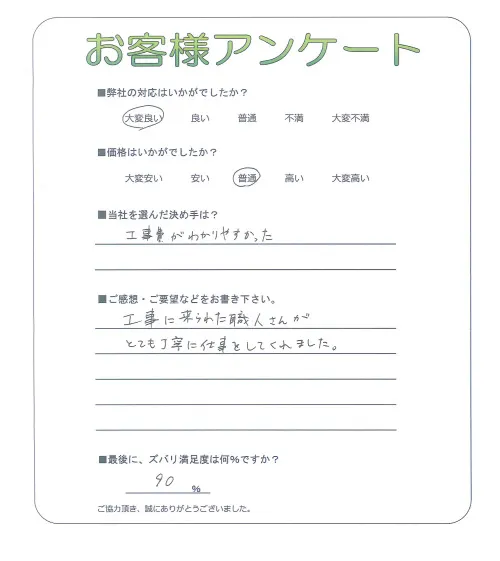 お客様アンケート
■弊社の対応はいかがでしたか？
大変良い 良い 普通 不満 大変不満
■価格はいかがでしたか？
大変安い 安い 普通 高い 大変高い
■当社を選んだ決め手は？
工事費がわかりやすかった
■ご感想・ご要望などをお書き下さい。
工事に来られた職人さんが
とても丁寧に仕事をしてくれました。
■最後に、ズバリ満足度は何%ですか？
90 %
ご協力頂き、誠にありがとうございました。